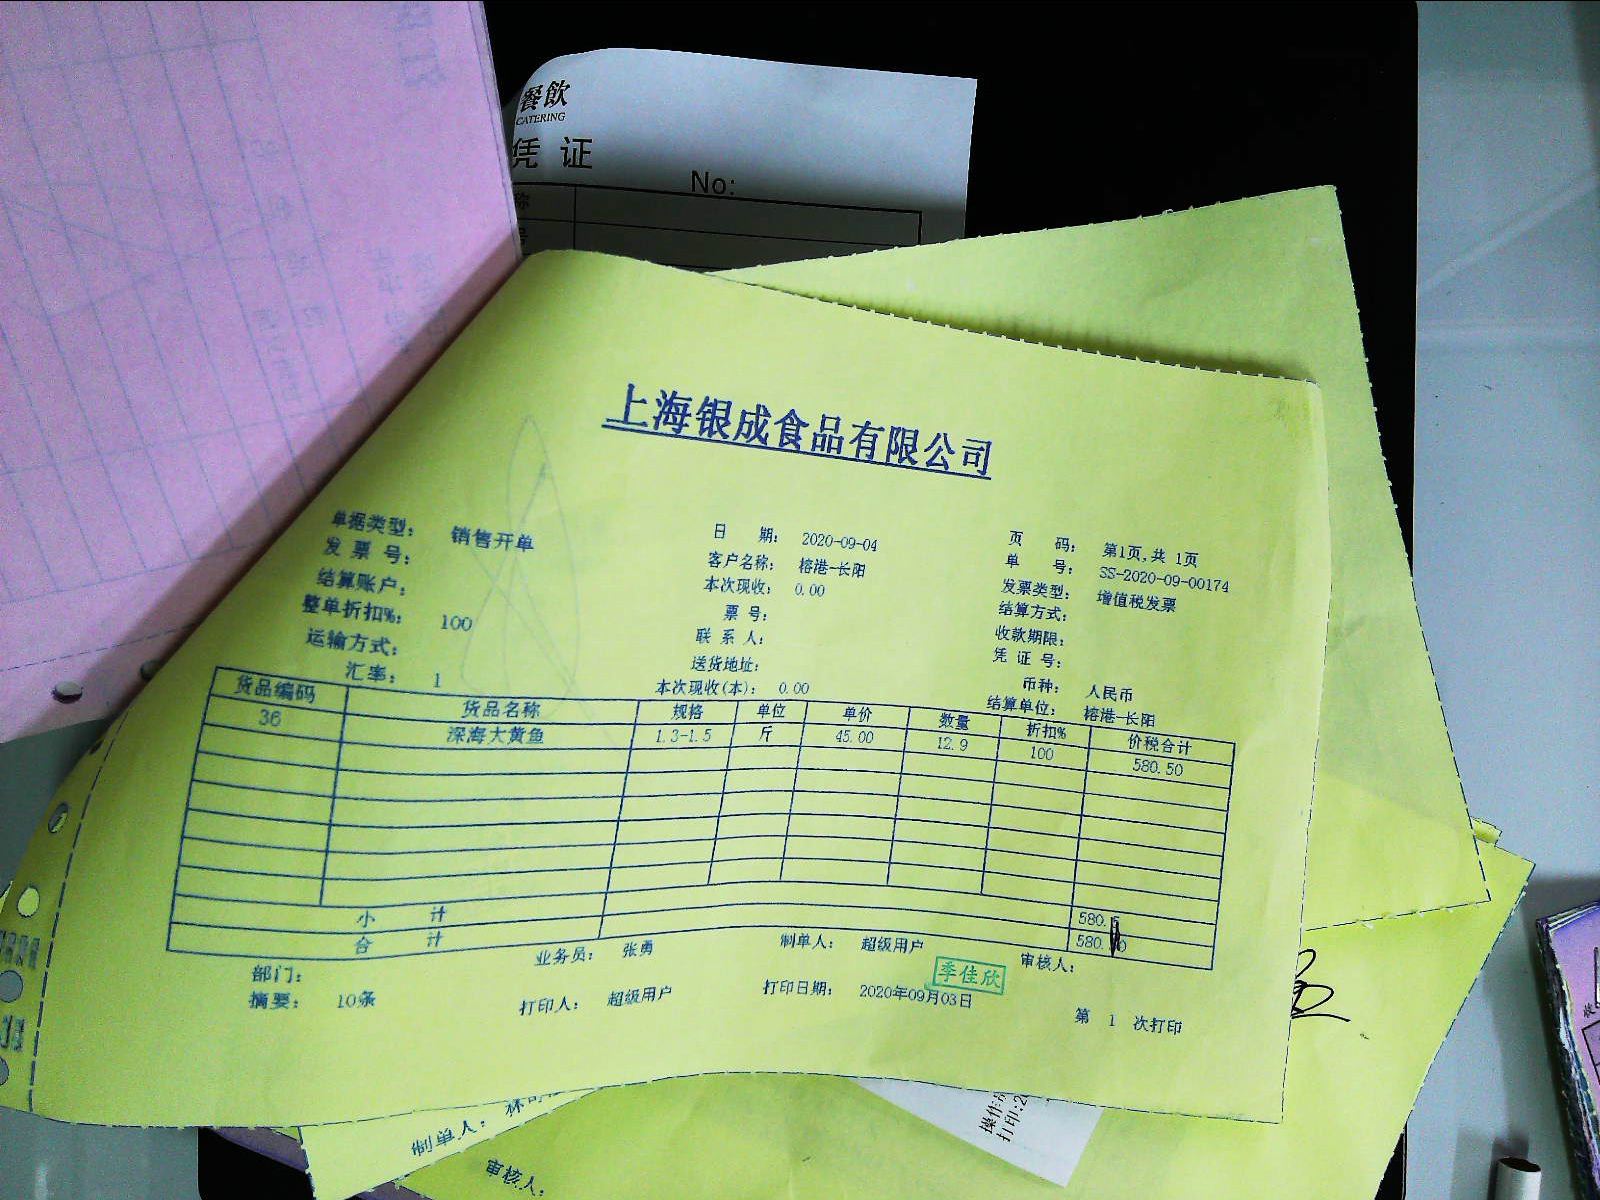 餐飲
CATERING
凭 证
No:
称
号
上海银成食品有限公司
单据类型： 销售开单 日 期： 2020-09-04 页 码： 第1页,共 1页
发 票 号： 客户名称： 榕港-长阳 单 号： SS-2020-09-00174
结算账户： 本次现收： 0.00 发票类型： 增值税发票
整单折扣%： 100 票 号： 结算方式：
运输方式： 联 系 人： 收款期限：
汇率： 1 送货地址： 凭 证 号：
本次现收(本)： 0.00 币种： 人民币
结算单位： 榕港-长阳
货品编码 货品名称 规格 单位 单价 数量 折扣% 价税合计
36 深海大黄鱼 1.3-1.5 斤 45.00 12.9 100 580.50
小 计 580.5
合 计
部门： 业务员： 张勇 制单人： 超级用户 审核人：
季佳欣
摘要： 10条 打印人： 超级用户 打印日期： 2020年09月03日 第 1 次打印
制单人：
审核人：